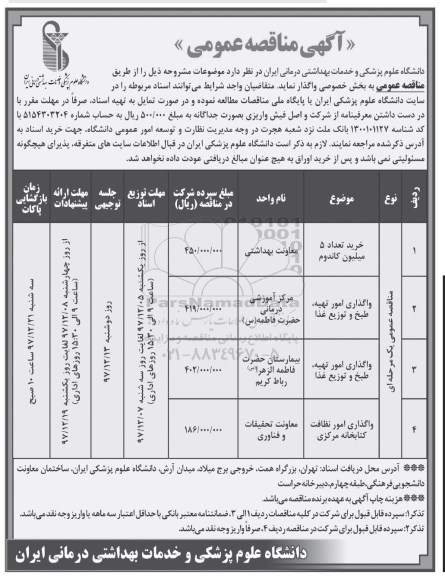 «آگهی مناقصه عمومی»
دانشگاه علوم پزشکی و خدمات بهداشتی درمانی ایران
دانشگاه علوم پزشکی و خدمات بهداشتی درمانی ایران در نظر دارد موضوعات مشروحه ذیل را از طریق
مناقصه عمومی به بخش خصوصی واگذار نماید. متقاضیان واجد شرایط می‌توانند اسناد مربوطه را در
سایت دانشگاه علوم پزشکی ایران یا پایگاه ملی مناقصات مطالعه نموده و در صورت تمایل به تهیه اسناد، صرفاً در مهلت مقرر با
در دست داشتن معرفینامه از شرکت و اصل فیش واریزی بصورت جداگانه به مبلغ ۵۰۰/۰۰۰ ریال به حساب شماره ۵۱۵۴۳۰۳۲۰۴ با
کد شناسه ۱۳۰۰۱۰۱۱۲۷ بانک ملت نزد شعبه هجرت در وجه مدیریت نظارت و توسعه امور عمومی دانشگاه، جهت خرید اسناد به
آدرس ذکرشده مراجعه نمایند. لازم به ذکر است دانشگاه علوم پزشکی ایران در قبال اطلاعات سایت های متفرقه، پذیرای هیچگونه
مسئولیتی نمی باشد و پس از خرید اوراق به هیچ عنوان مبالغ دریافتی عودت داده نخواهد شد.
ردیف نوع موضوع نام واحد مبلغ سپرده شرکت در مناقصه (ریال) مهلت توزیع اسناد جلسه توجیهی مهلت ارائه پیشنهادات زمان بازگشایی پاکات
مناقصه عمومی یک مرحله ای
۱ خرید تعداد ۵ میلیون کاندوم معاونت بهداشتی ۴۵۰/۰۰۰/۰۰۰
۲ واگذاری امور تهیه، طبخ و توزیع غذا مرکز آموزشی درمانی حضرت فاطمه(س) ۴۱۹/۰۰۰/۰۰۰
۳ واگذاری امور تهیه، طبخ و توزیع غذا بیمارستان حضرت فاطمه الزهرا(س) رباط کریم ۴۰۲/۰۰۰/۰۰۰
۴ واگذاری امور نظافت کتابخانه مرکزی معاونت تحقیقات و فناوری ۱۸۶/۰۰۰/۰۰۰
از روز یکشنبه ۹۷/۱۲/۰۵ لغایت روز سه شنبه ۹۷/۱۲/۰۷
(ساعت ۹ الی ۱۵:۳۰ روزهای اداری)
روز دوشنبه ۹۷/۱۲/۱۳
از روز چهارشنبه ۹۷/۱۲/۰۸ لغایت روز یکشنبه ۹۷/۱۲/۱۹
(ساعت ۹ الی ۱۵:۳۰ روزهای اداری)
سه شنبه ۹۷/۱۲/۲۱ ساعت ۱۰ صبح
ParsNamadData
۰۲۱-۸۸۳۴۹۶۷۰-۵
*** آدرس محل دریافت اسناد: تهران، بزرگراه همت، خروجی برج میلاد، میدان آرش، دانشگاه علوم پزشکی ایران، ساختمان معاونت
دانشجویی فرهنگی، طبقه چهارم، دبیرخانه حراست
*** هزینه چاپ آگهی به عهده برنده مناقصه می‌باشد.
تذکر۱: سپرده قابل قبول برای شرکت در کلیه مناقصات ردیف ۱ الی ۳، ضمانتنامه معتبر بانکی با حداقل اعتبار سه ماهه یا واریز وجه نقد می‌باشد.
تذکر۲: سپرده قابل قبول برای شرکت در مناقصه ردیف ۴، صرفاً واریز وجه نقد می‌باشد.
دانشگاه علوم پزشکی و خدمات بهداشتی درمانی ایران